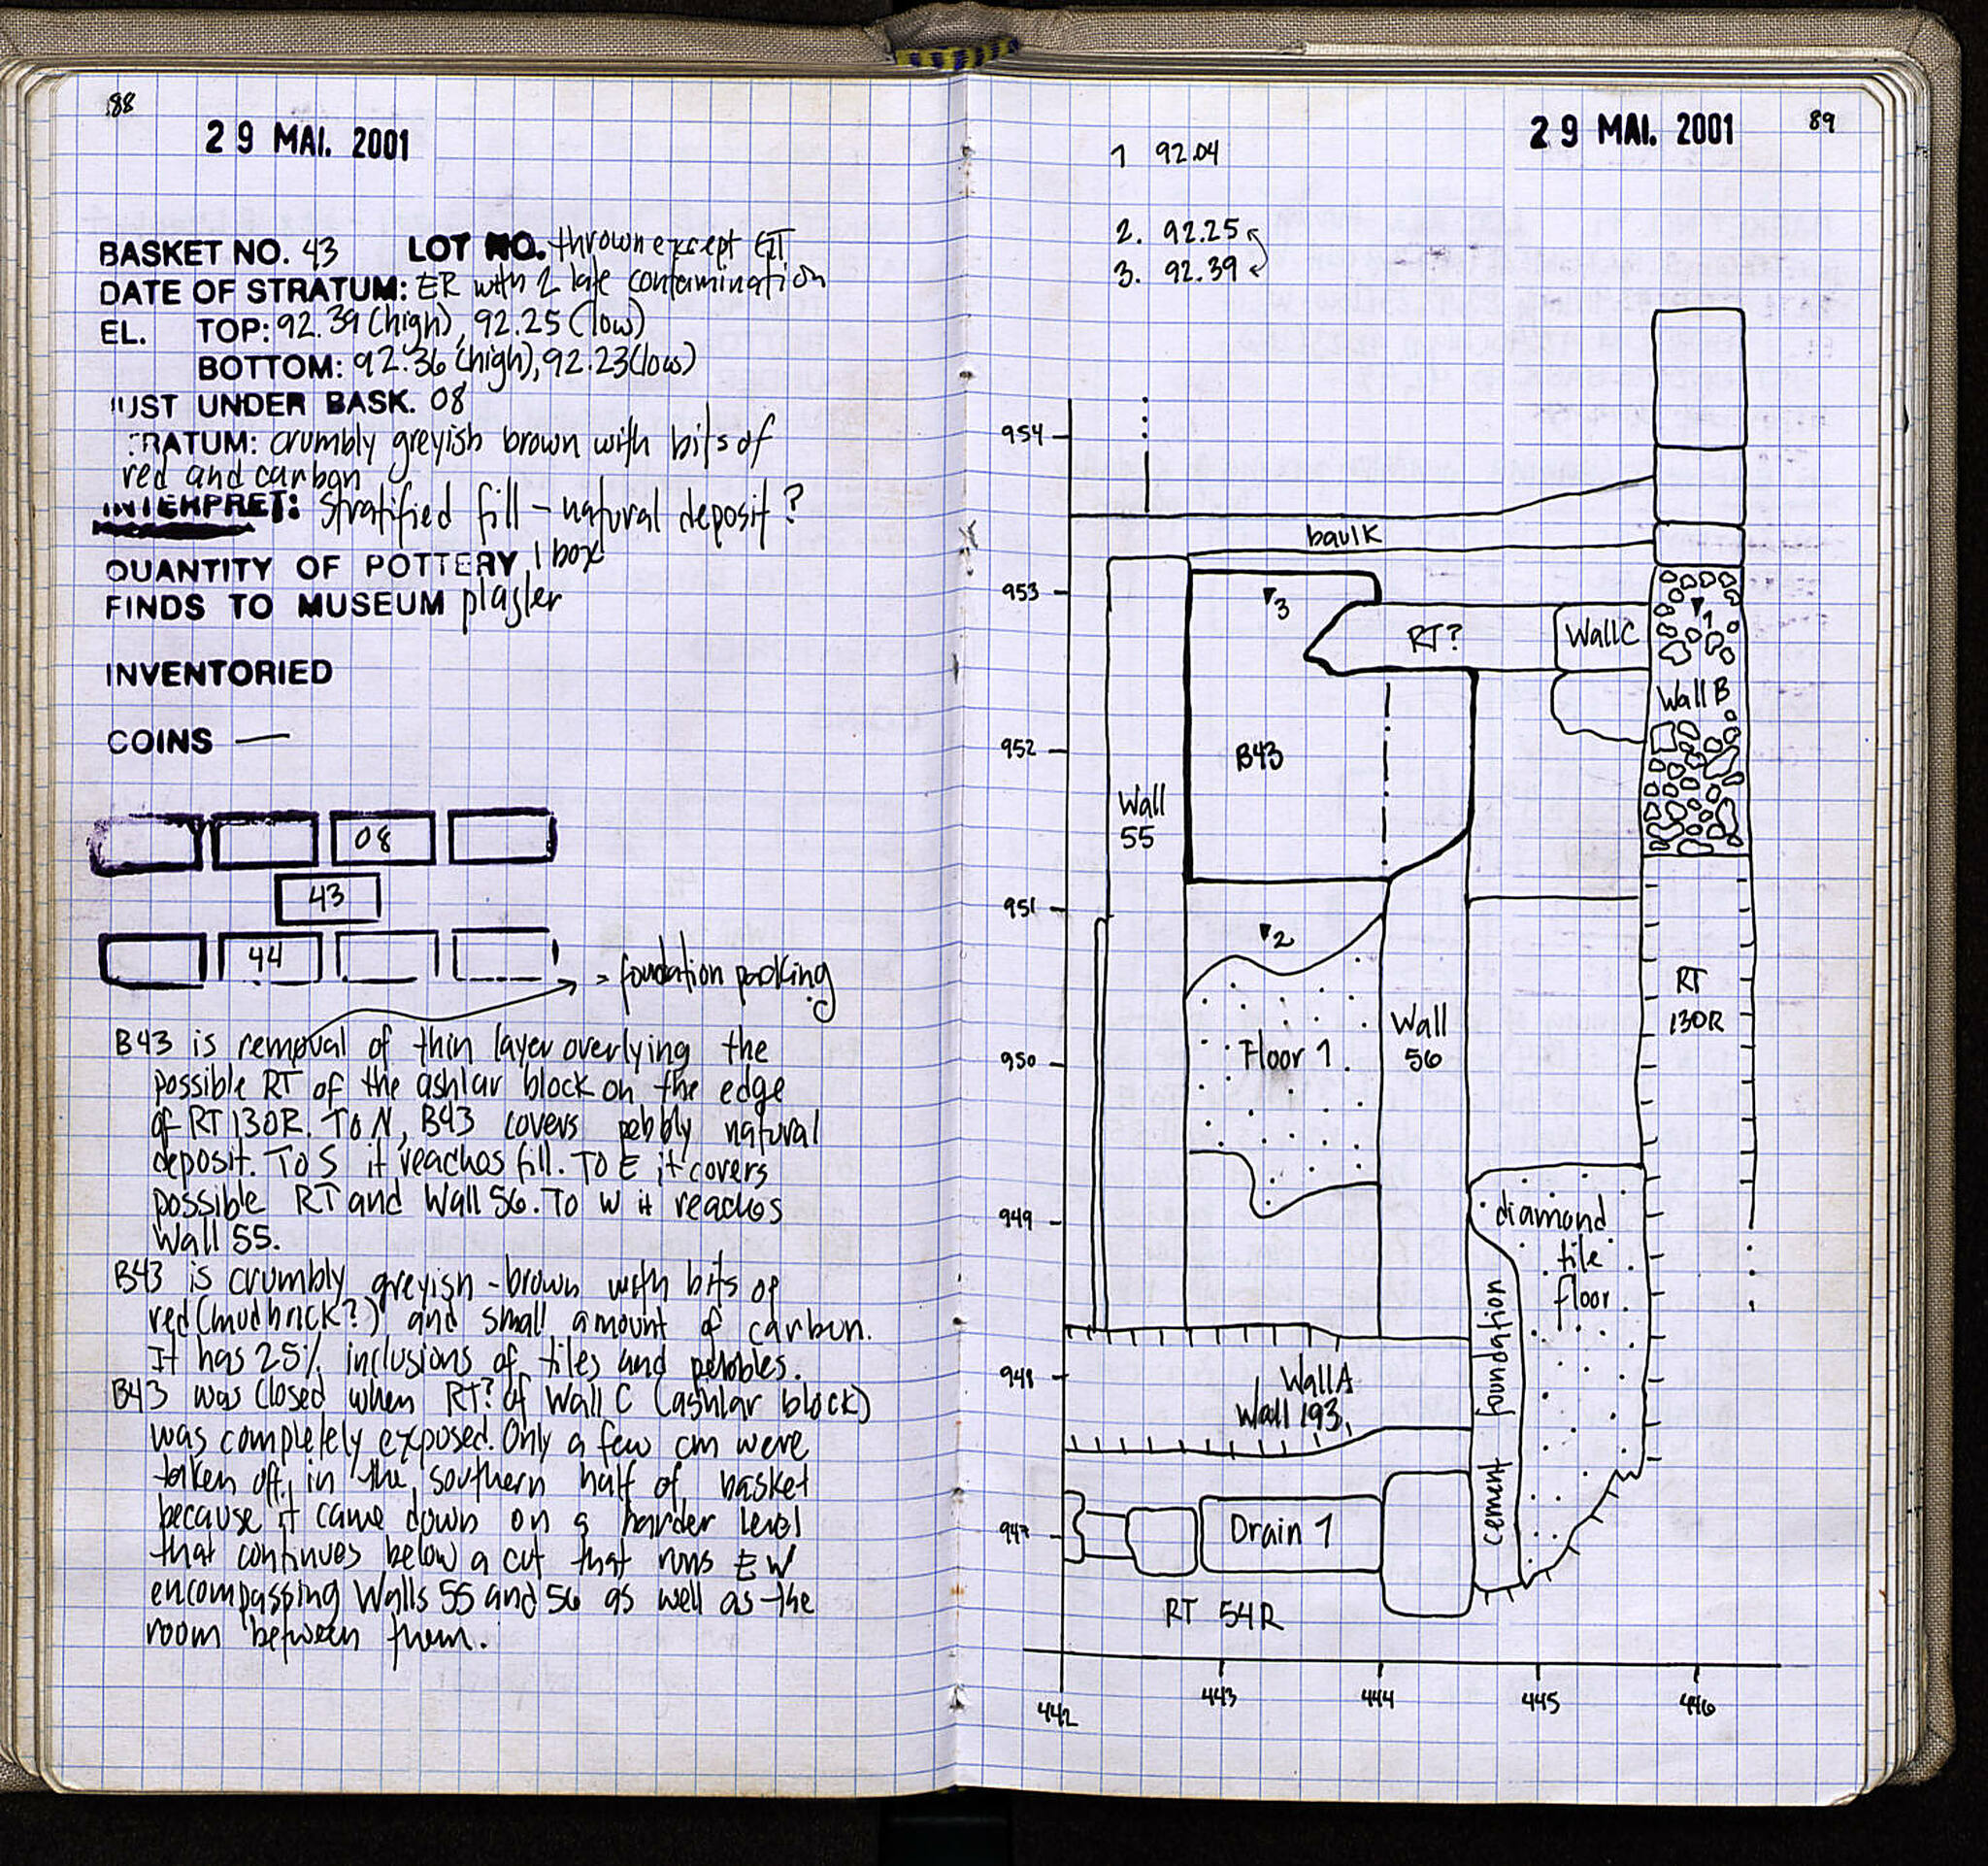 88
29 MAI. 2001
BASKET NO. 43 LOT NO. thrown except GT
DATE OF STRATUM: ER with 2 late contamination
EL. TOP: 92.39 (high), 92.25 (low)
BOTTOM: 92.36 (high), 92.23 (low)
JUST UNDER BASK. 08
STRATUM: crumbly greyish brown with bits of
red and carbon
INTERPRET: stratified fill - natural deposit?
QUANTITY OF POTTERY 1 box
FINDS TO MUSEUM plaster
INVENTORIED
COINS —
08
43
44
= foundation packing
B43 is removal of thin layer overlying the
possible RT of the ashlar block on the edge
of RT 130R. To N, B43 covers pebbly natural
deposit. To S it reaches fill. To E it covers
possible RT and Wall 56. To W it reaches
Wall 55.
B43 is crumbly greyish-brown with bits of
red (mudbrick?) and small amount of carbon.
It has 25% inclusions of tiles and pebbles.
B43 was closed when RT? of Wall C (ashlar block)
was completely exposed. Only a few cm were
taken off in the southern half of basket
because it came down on a harder level
that continues below a cut that runs EW
encompassing Walls 55 and 56 as well as the
room between them.
29 MAI. 2001
89
1 92.04
2. 92.25
3. 92.39
954
baulk
953
3
RT?
Wall C
1
Wall B
952
B43
Wall
55
951
2
RT
130R
950
Floor 1
Wall
56
949
diamond
tile
floor
cement foundation
948
Wall A
Wall 193
947
Drain 1
RT 54R
442
443
444
445
446